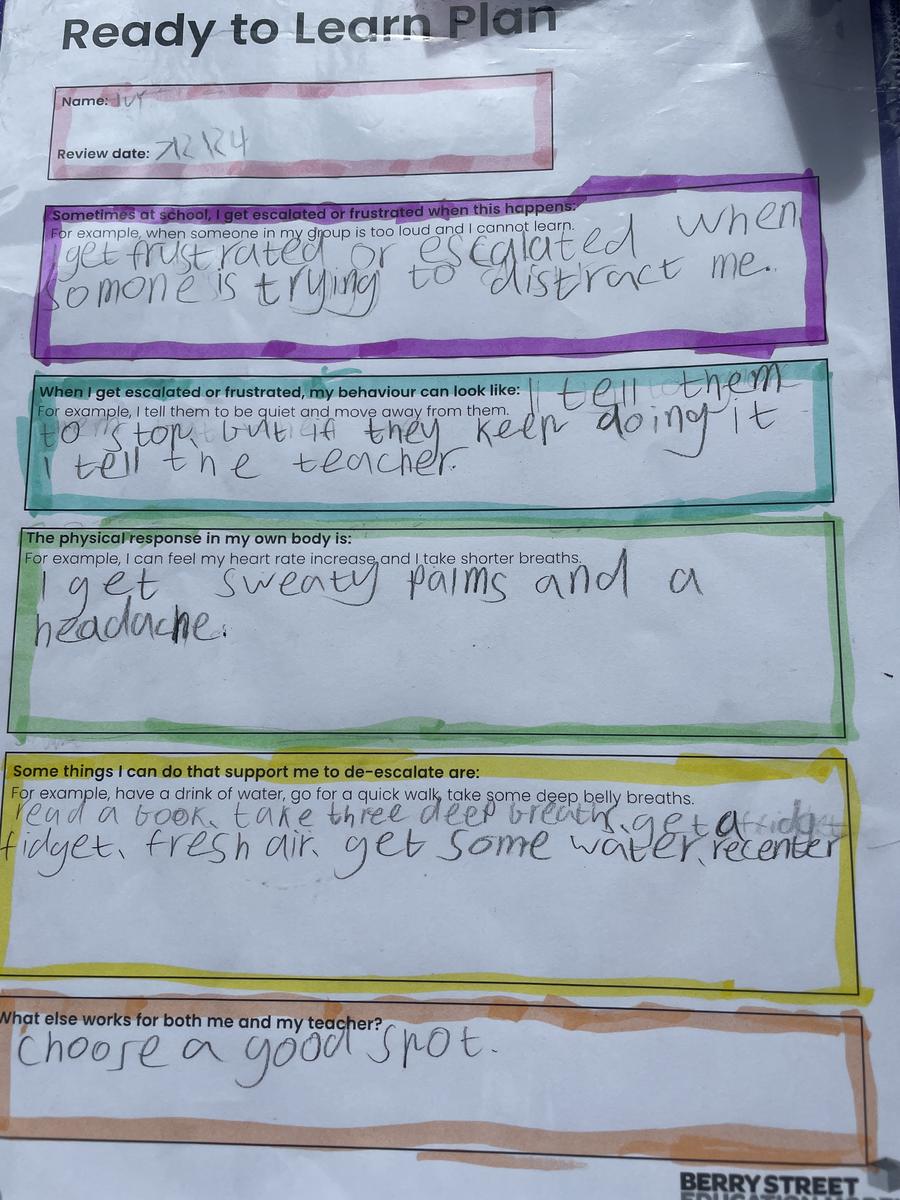 Ready to Learn Plan
Name: Ivy
Review date: 7\2\24
Sometimes at school, I get escalated or frustrated when this happens:
For example, when someone in my group is too loud and I cannot learn.
get frustrated or escalated when
somone is trying to distract me.
When I get escalated or frustrated, my behaviour can look like: I tell them
For example, I tell them to be quiet and move away from them.
to stop but if they keep doing it
i tell the teacher.
The physical response in my own body is:
For example, I can feel my heart rate increase and I take shorter breaths.
I get sweaty palms and a
headache.
Some things I can do that support me to de-escalate are:
For example, have a drink of water, go for a quick walk, take some deep belly breaths.
read a book, take three deep breaths, get a
fidget, fresh air, get some water, recenter
What else works for both me and my teacher?
Choose a good spot.
BERRY STREET